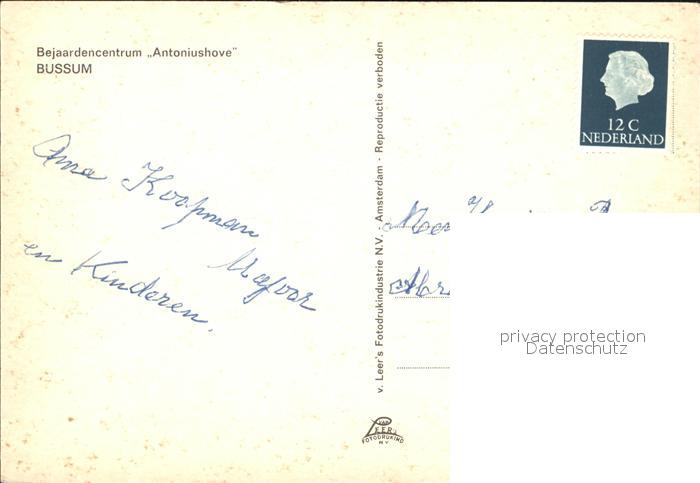 Bejaardencentrum „Antoniushove"
BUSSUM
Anna Koopman
en Kinderen.
v. Leer's Fotodrukindustrie N.V. - Amsterdam - Reproductie verboden
12 C
NEDERLAND
privacy protection
Datenschutz
VAN
LEER'S
FOTODRUKIND
N V